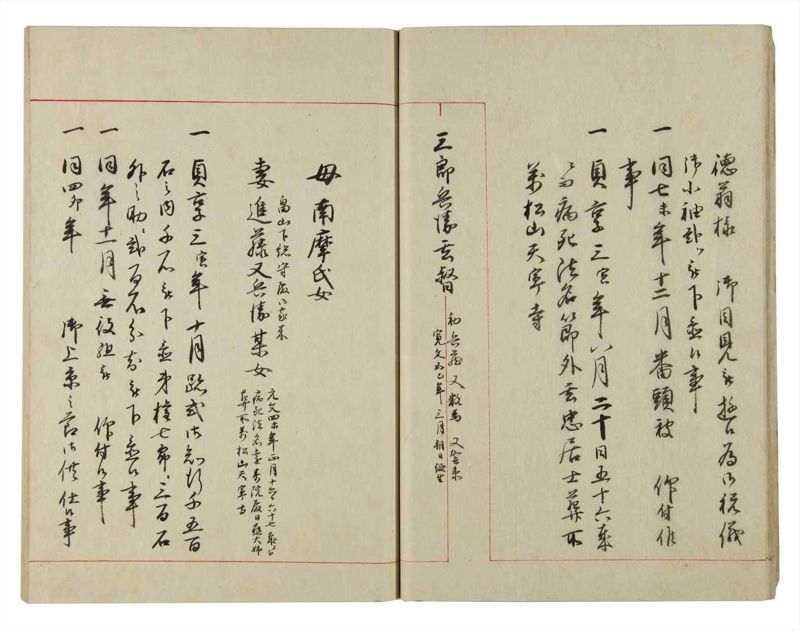 德翁様 御目見被 為御祝儀
御小袖 被下置候事
一 同七未年十二月番頭被 仰付候
事
一 貞享三寅年八月二十日五十六歳
而病死法名節外玄忠居士葬所
萬松山天寧寺
三郎兵衛玄督 初兵蔵 又数馬 又
寛文五巳年三月朔日
母南摩氏女
畠山下総守殿御家来
妻進藤又兵衛某女 元文四未年正月十六日六十七歳
病死法名院殿日大姉
葬所萬松山天寧寺
一 貞享三寅年十月跡式御知行千五百
石之内千石被下置弟権七郎三百石
外之助二百石分知被下置候事
一 同年十一月無役組被 仰付候事
一 同四卯年 御上京之節御供仕候事